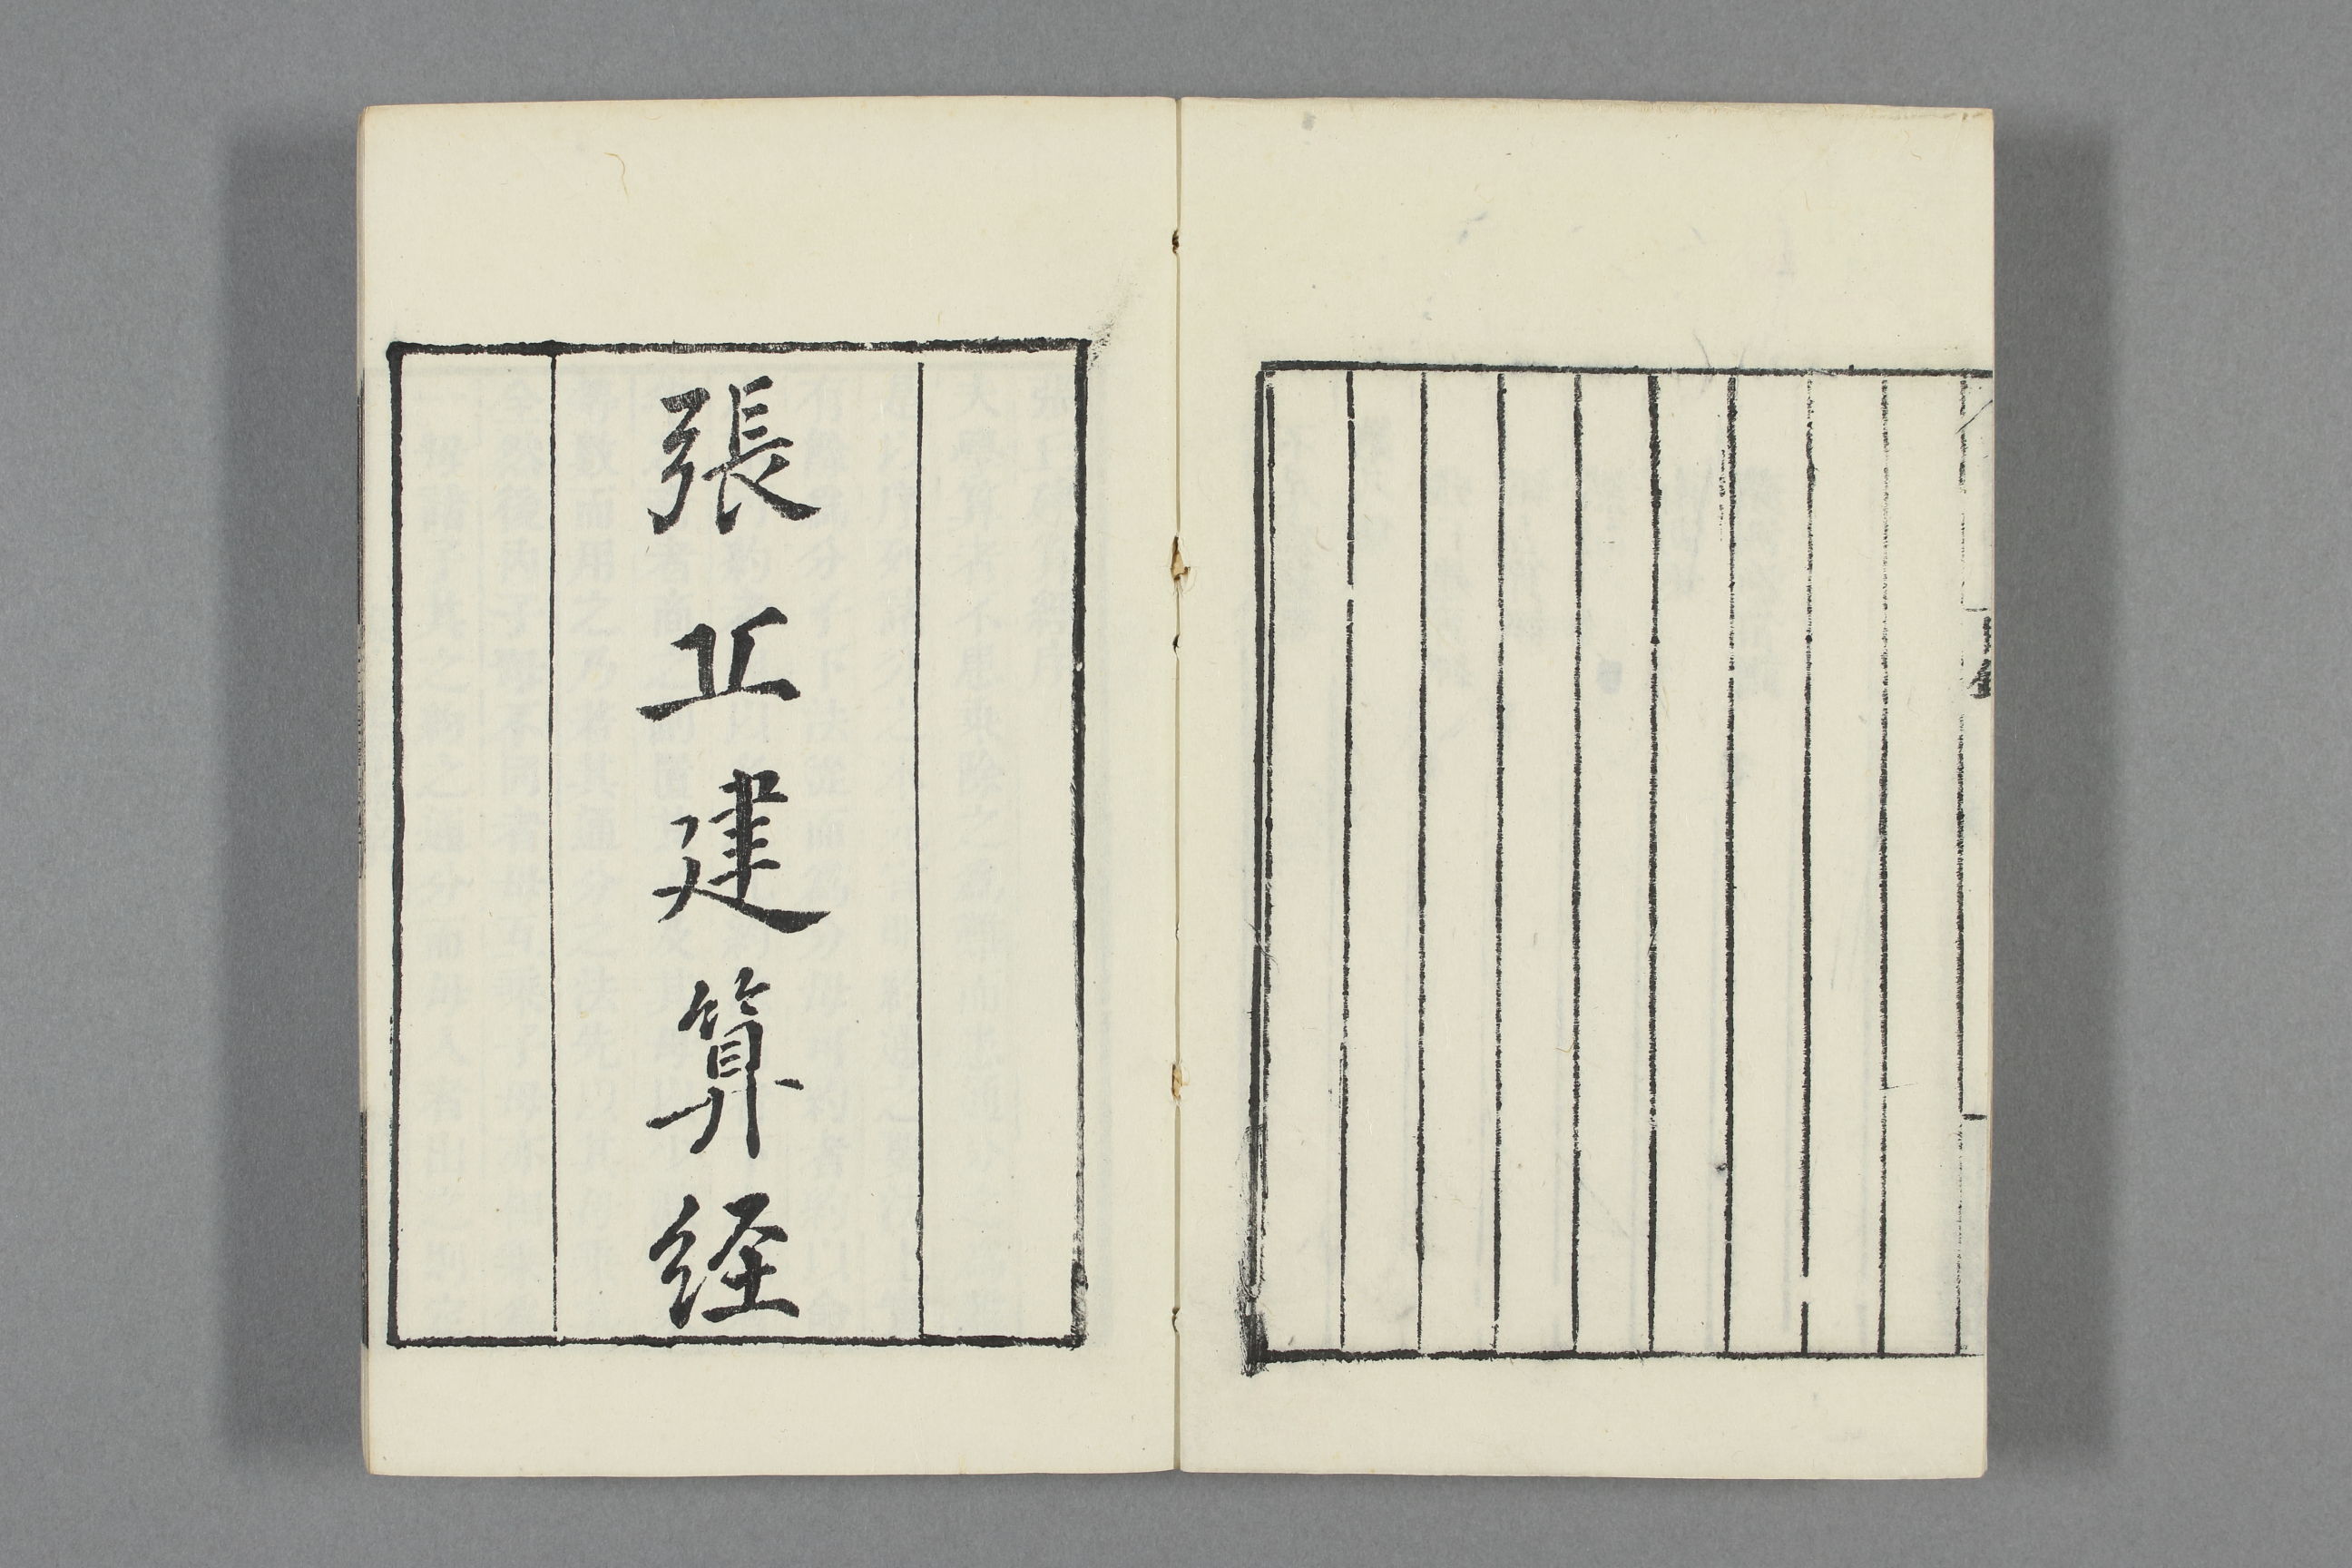 張𠀉建算経